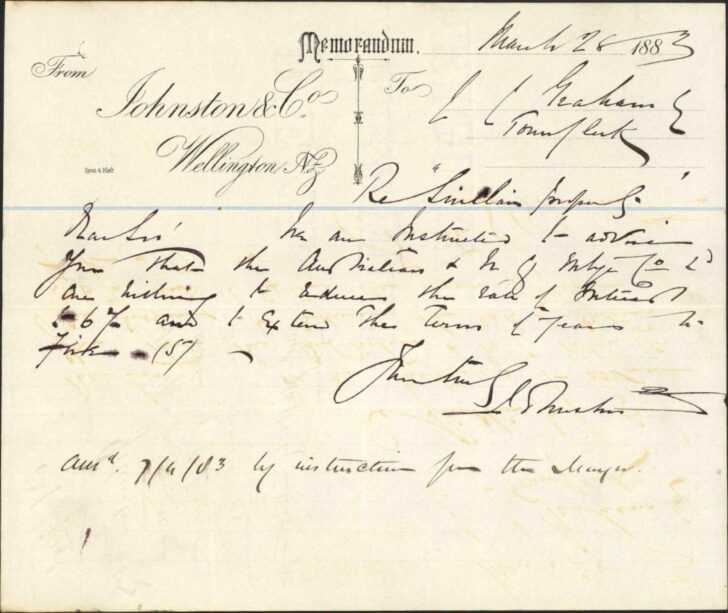 Memorandum.
March 28 1883
From
To
Johnston & Co.
Wellington, N.Z.
Lyon & Blair
Graham
Town Clerk
Re "Sinclair property"
Dear Sir We are Instructed to advise
You that the Australian & N Z Mtge Co Ld
are willing to reduce the rate of Interest
to 6% and to Extend the Term of Years to
five (5)
Yours truly
Johnston
Ansd. 7/4/83 by instruction from the Mayor.